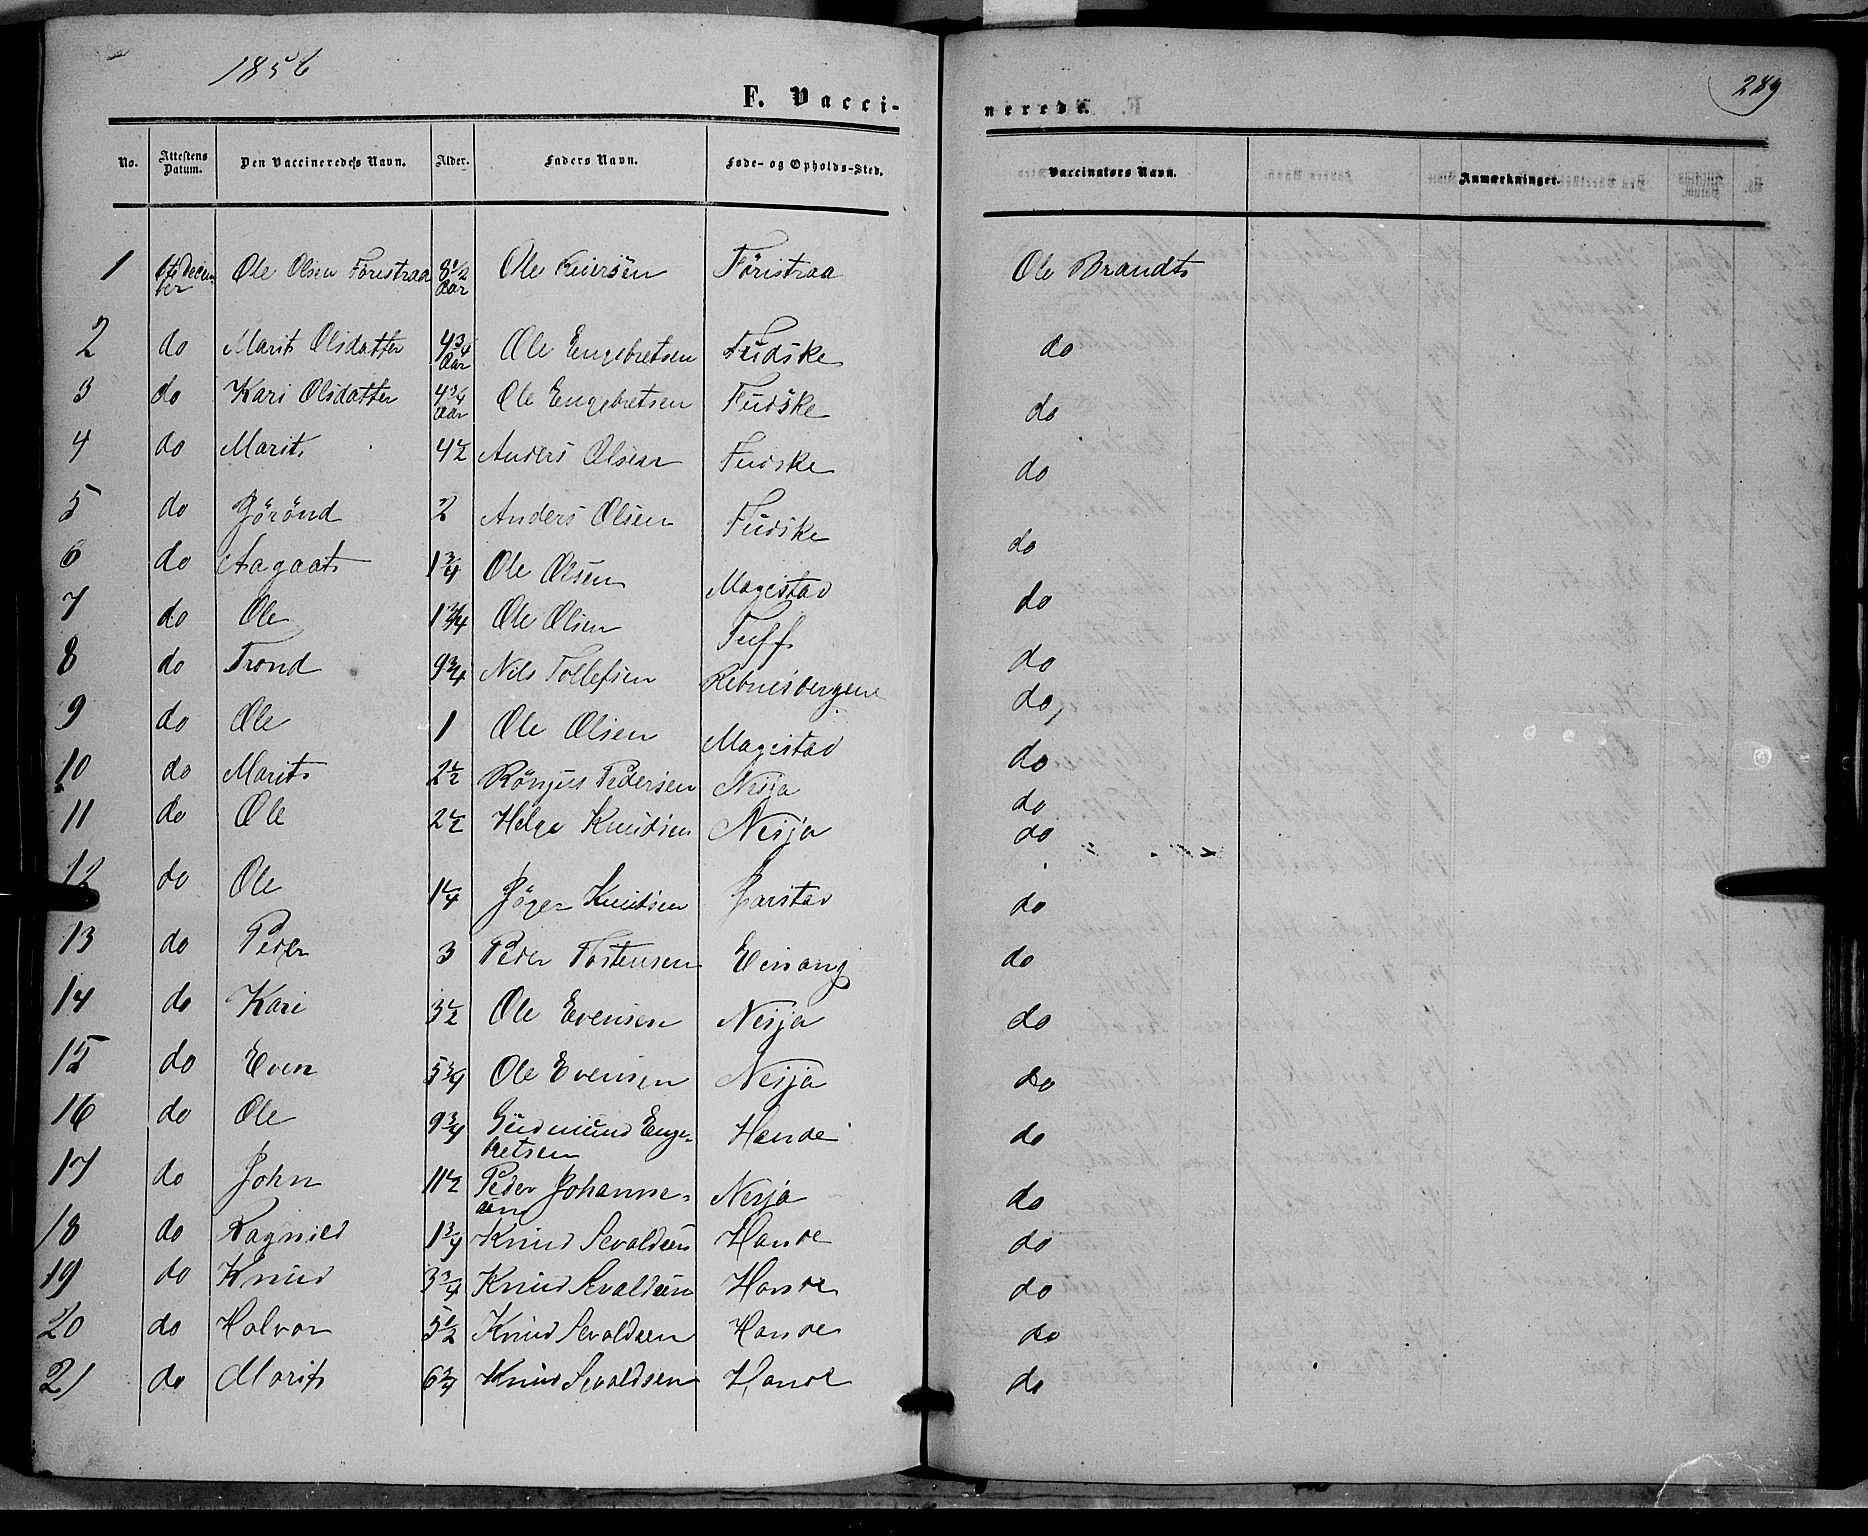 1856
289
F. Vacci-
nerede.
No. Attestens Datum. Den Vaccineredes Navn. Alder. Faders Navn. Føde- og Opholds-Sted. Vaccinators Navn. Anmærkninger.
1 Decem- Ole Olsen Föristraa 8 1/2 Ole Föristraa Ole Brandt
ber Aar
2 do Marit Olsdatter 4 3/4 Ole Engebretsen Fudske do
Aar
3 do Kari Olsdatter 4 3/4 Ole Engebretsen Fudske do
Aar
4 do Marit 4 1/2 Anders Olsen Fudske do
5 do Jörönd 2 Anders Olsen Fudske do
6 do Aagaat 1 3/4 Ole Olsen Magistad do
7 do Ole 1 3/4 Ole Olsen Tuff do
8 do Trond 9 3/4 Nils Tollefsen Rebnesbergene do
9 do Ole 1 Ole Olsen Magistad do
10 do Marit 2 1/2 Pedersen Nesja do
11 do Ole 2 1/2 Helge Knudsen Nesja do
12 do Ole 1 1/4 Jöger Knudsen Garstad do
13 do Peder 3 Peder Tostensen Einang do
14 do Kari 3 1/2 Ole Evensen Nesja do
15 do Even 5 3/4 Ole Evensen Nesja do
16 do Ole 9 3/4 Gudmund Enge- Hande do
bretsen
17 do John 11 1/2 Peder Johanne- Nesja do
sen
18 do Ragnild 1 3/4 Knud Sevaldsen Hande do
19 do Knud 3 3/4 Knud Sevaldsen Hande do
20 do Halvor 5 1/2 Knud Sevaldsen Hande do
21 do Marit 6 3/4 Knud Sevaldsen Hande do